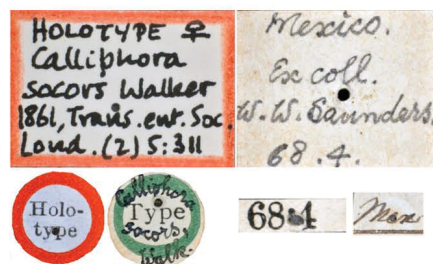 HOLOTYPE ♀
Calliphora
socors Walker
1861, Trans. ent. Soc.
Lond. (2) 5:311
Mexico.
Ex coll.
W. W. Saunders,
68.4.
Holo-
type
Calliphora
Type
socors,
Walk.
68·4
Mex